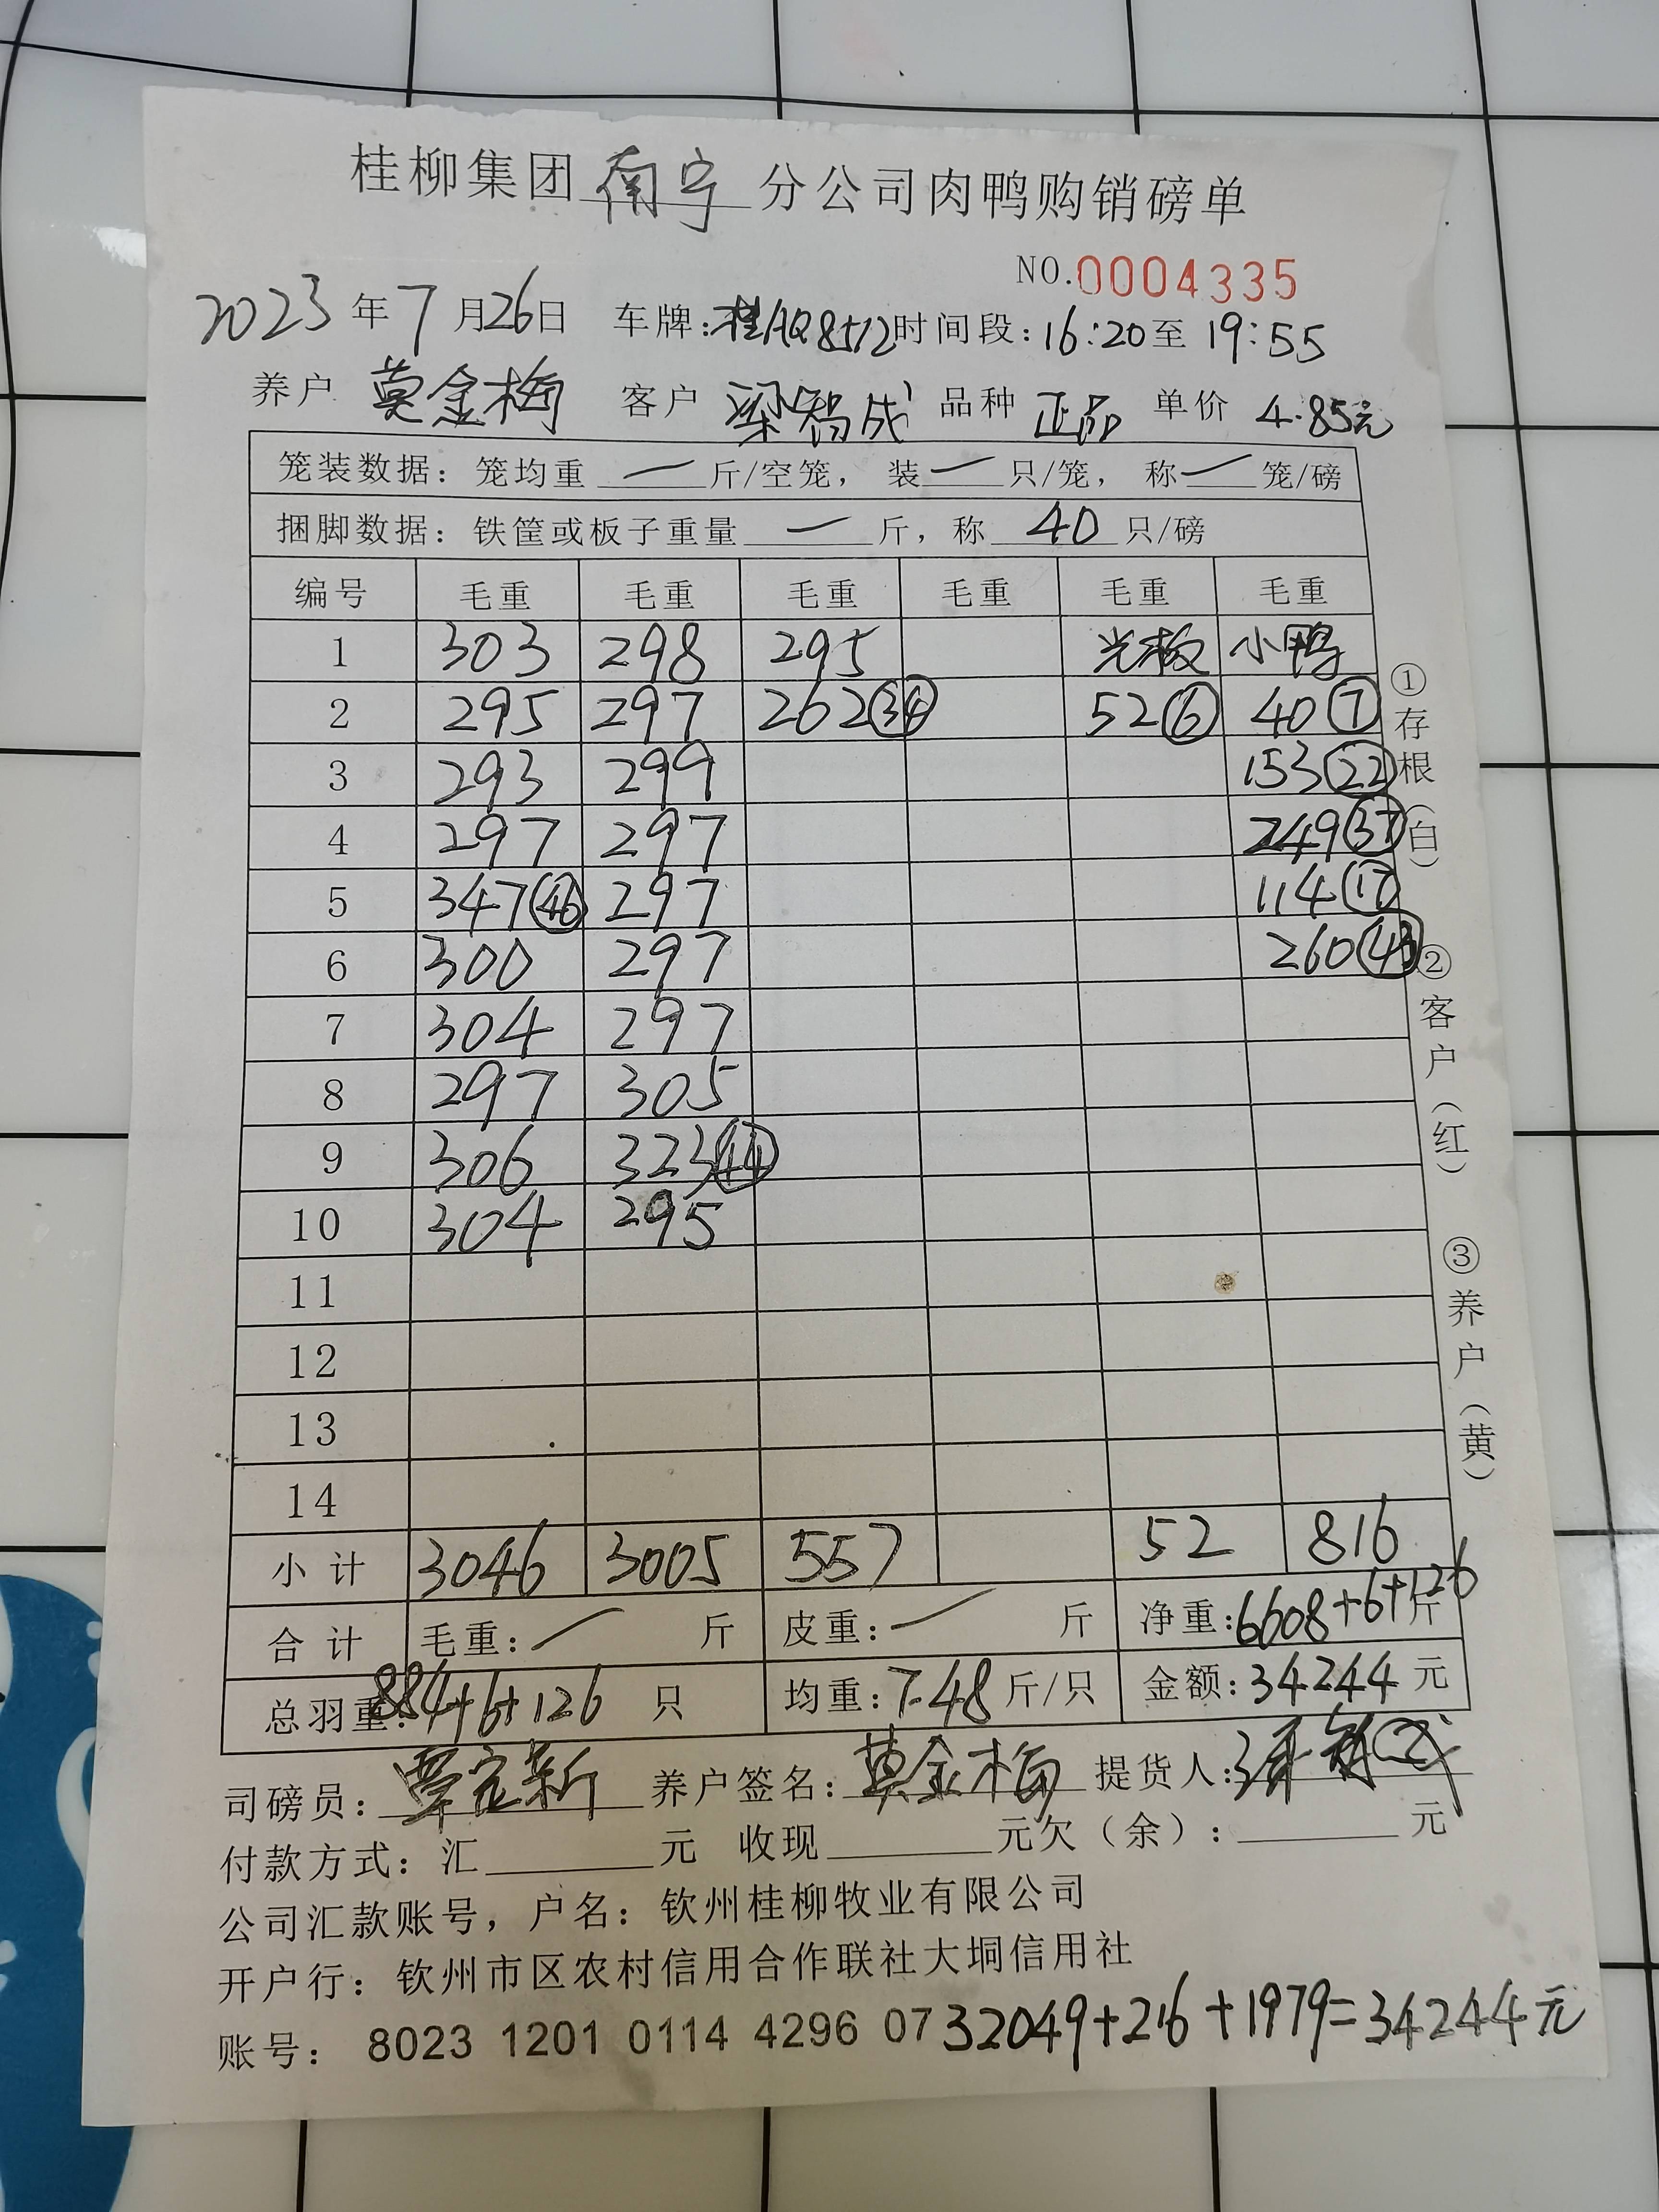 桂柳集团南宁分公司肉鸭购销磅单
NO.0004335
2023年7月26日 车牌:桂AQ8512 时间段:16:20至19:55
养户 莫金梅 客户 梁智成 品种 正品 单价 4.85元
笼装数据: 笼均重 一 斤/空笼, 装 一 只/笼, 称 一 笼/磅
捆脚数据: 铁筐或板子重量 一 斤, 称 40 只/磅
编号 毛重 毛重 毛重 毛重 毛重 毛重
1 303 298 295 光板 小鸭
2 295 297 262㉞ 52⑥ 40⑦
3 293 299 153㉒
4 297 297 249㊲
5 347㊻ 297 114⑰
6 300 297 260㊸
7 304 297
8 297 305
9 306 323㊹
10 304 295
11
12
13
14
小计 3046 3005 557 52 816
合计 毛重: 一 斤 皮重: 一 斤 净重:6608+6+126斤
总羽重:884+6+126 只 均重:7.48斤/只 金额:34244元
司磅员: 覃定新 养户签名: 莫金梅 提货人:
付款方式: 汇 元 收现 元欠(余): 元
公司汇款账号, 户名: 钦州桂柳牧业有限公司
开户行: 钦州市区农村信用合作联社大垌信用社
账号: 8023 1201 0114 4296 07 32049+216+1979=34244元
①存根(白)
②客户(红)
③养户(黄)